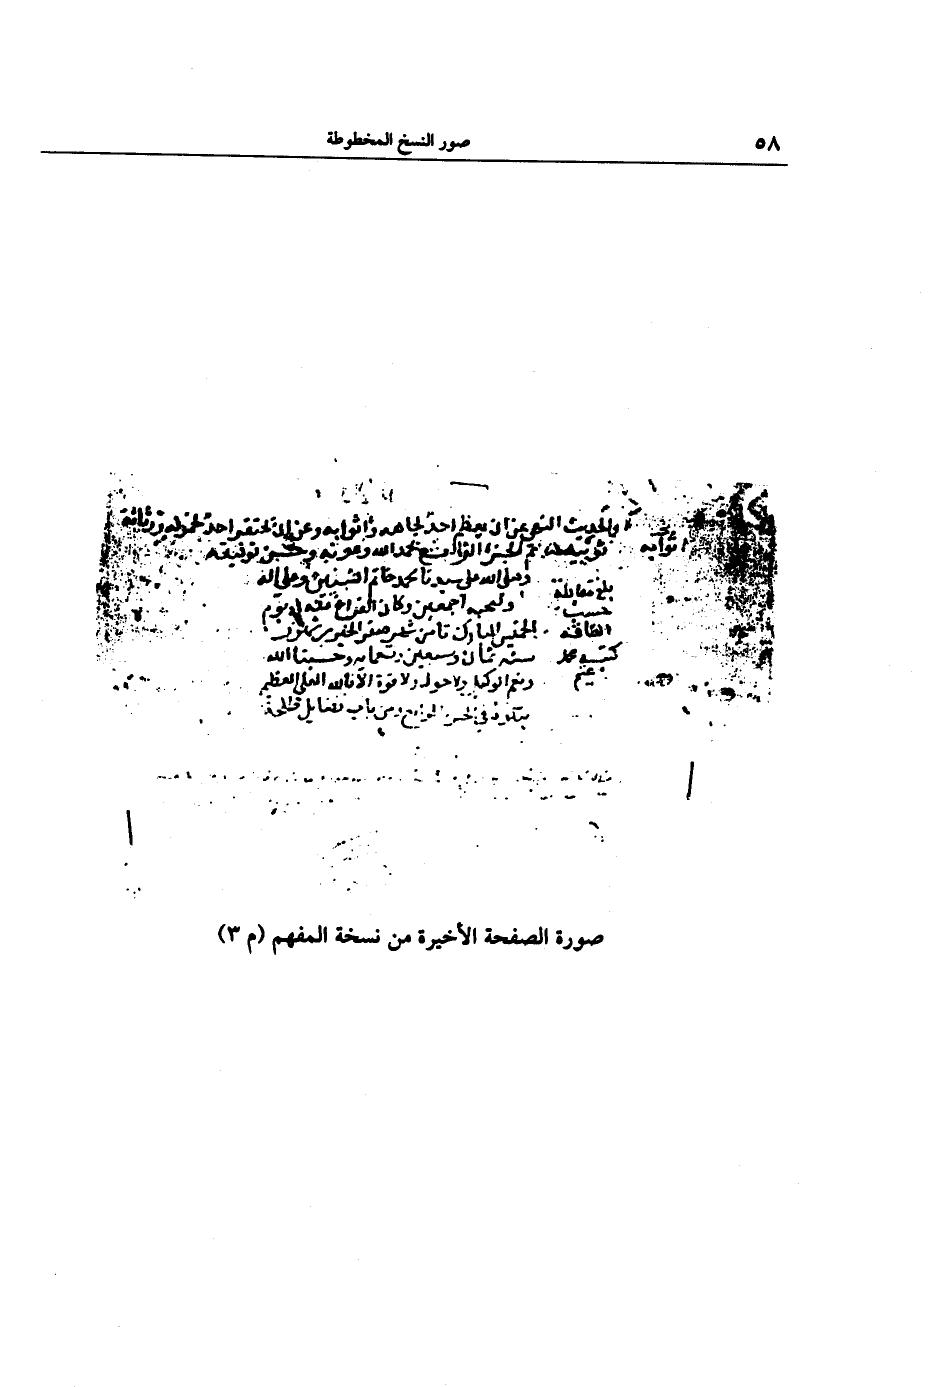 ٥٨
صور النسخ المخطوطة
بالحديث النهي عن ان يعظم احد لجاهه واثوابه وعن ان يحتقر احد
ثوبيه تم الجزء بحمد الله وعونه وحسن توفيقه
وصلى الله على سيدنا محمد خاتم النبيين وعلى اله
وصحبه اجمعين وكان الفراغ منه في يوم
الخميس المبارك ثامن شهر صفر الخير من شهور
سنة ثمان وسبعين وحسبنا الله
ونعم الوكيل ولا حول ولا قوة الا بالله العلي العظيم
يتلوه في الجزء الرابع من باب فضائل طلحة
اثوابه
بلغ مقابلة
حسب
الطاقة
كتبه محمد
صورة الصفحة الأخيرة من نسخة المفهم (م ٣)